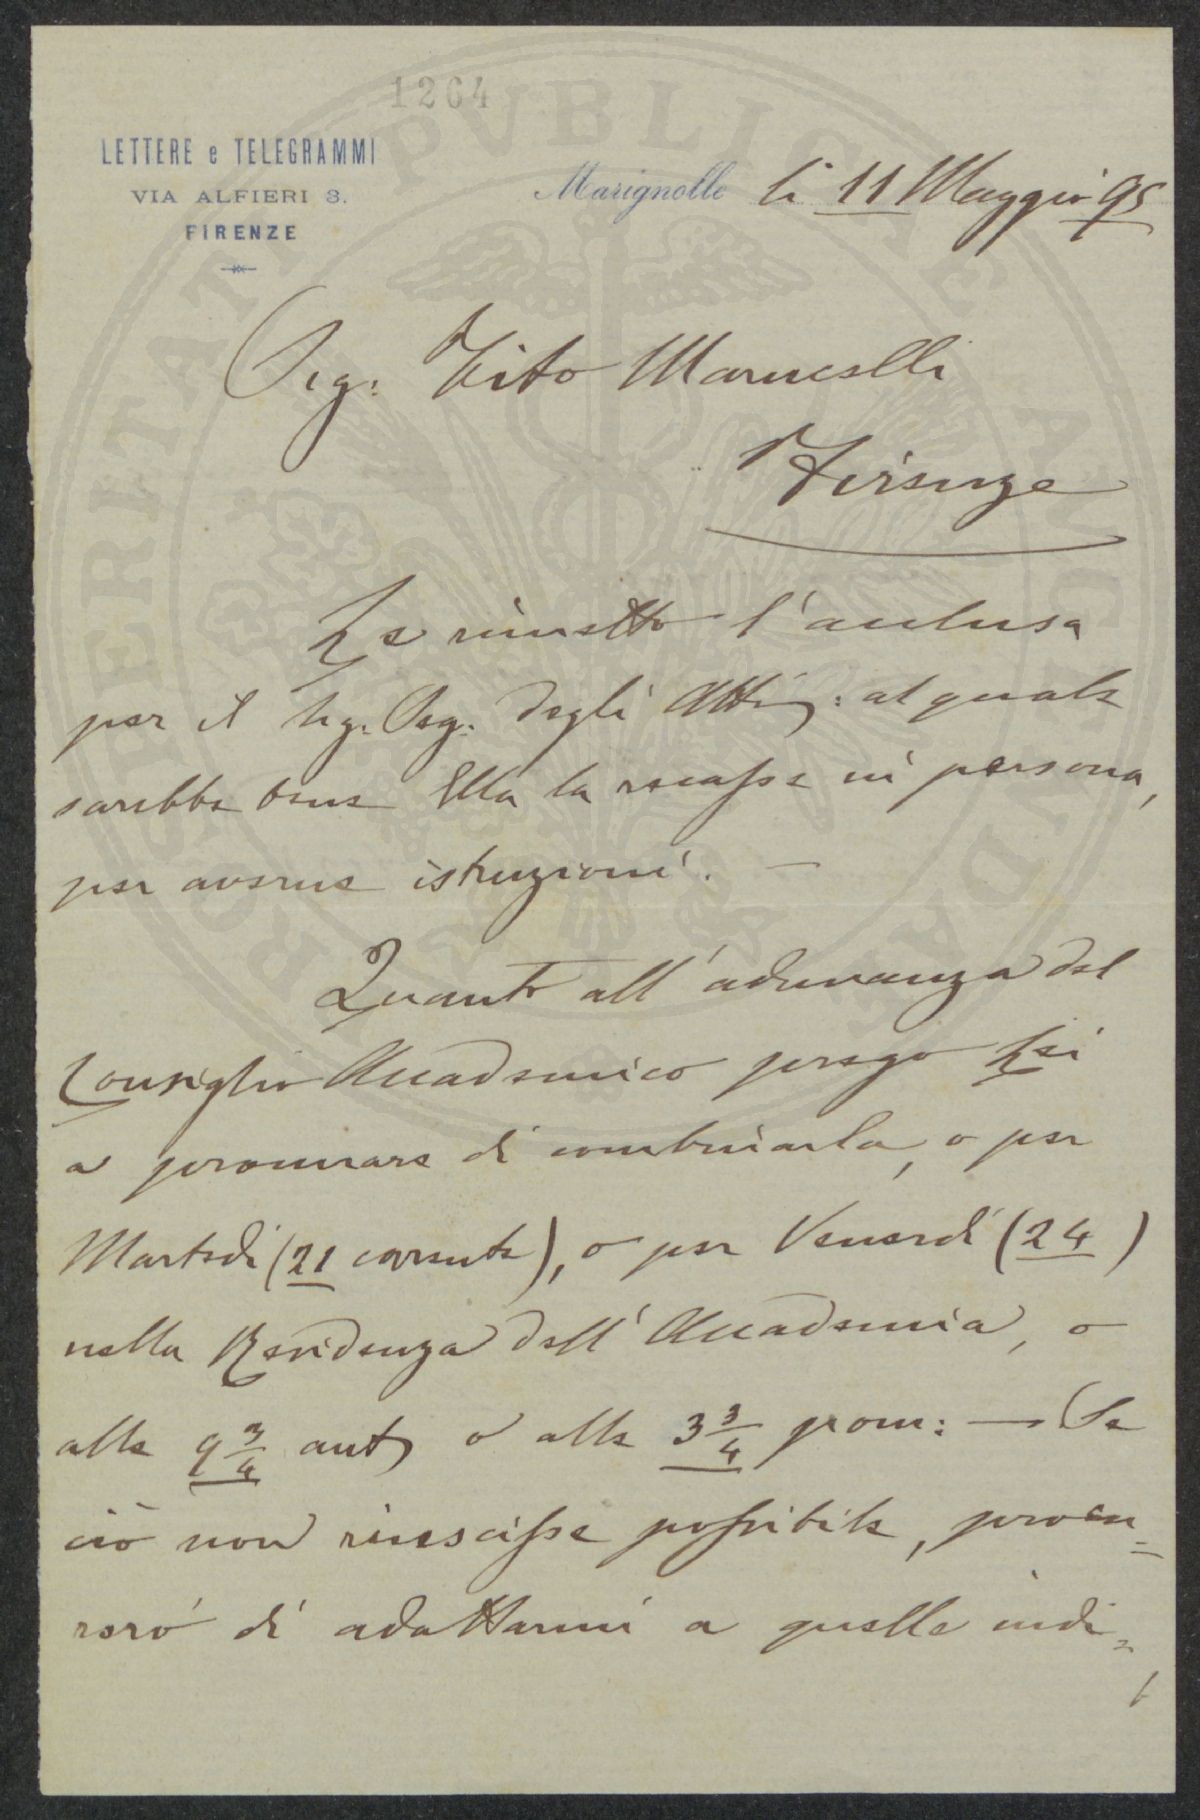 1264
LETTERE e TELEGRAMMI
VIA ALFIERI 3.
FIRENZE
Marignolle li 11 Maggio 95
Sig: Vito Marucelli
Firenze
Le rimetto l'acclusa
per il Sig. Seg. degli Atti: al quale
sarebbe bene Ella la recasse in persona,
per averne istruzioni. —
Quanto all'adunanza del
Consiglio Accademico prego Lei
a procurare di combinarla, o per
Martedì (21 corrente), o per Venerdì (24)
nella Residenza dell'Accademia, o
alle 9 3/4 ant o alle 3 3/4 pom: — Se
ciò non riuscisse possibile, procu=
rerò di adattarmi a quelle indi=